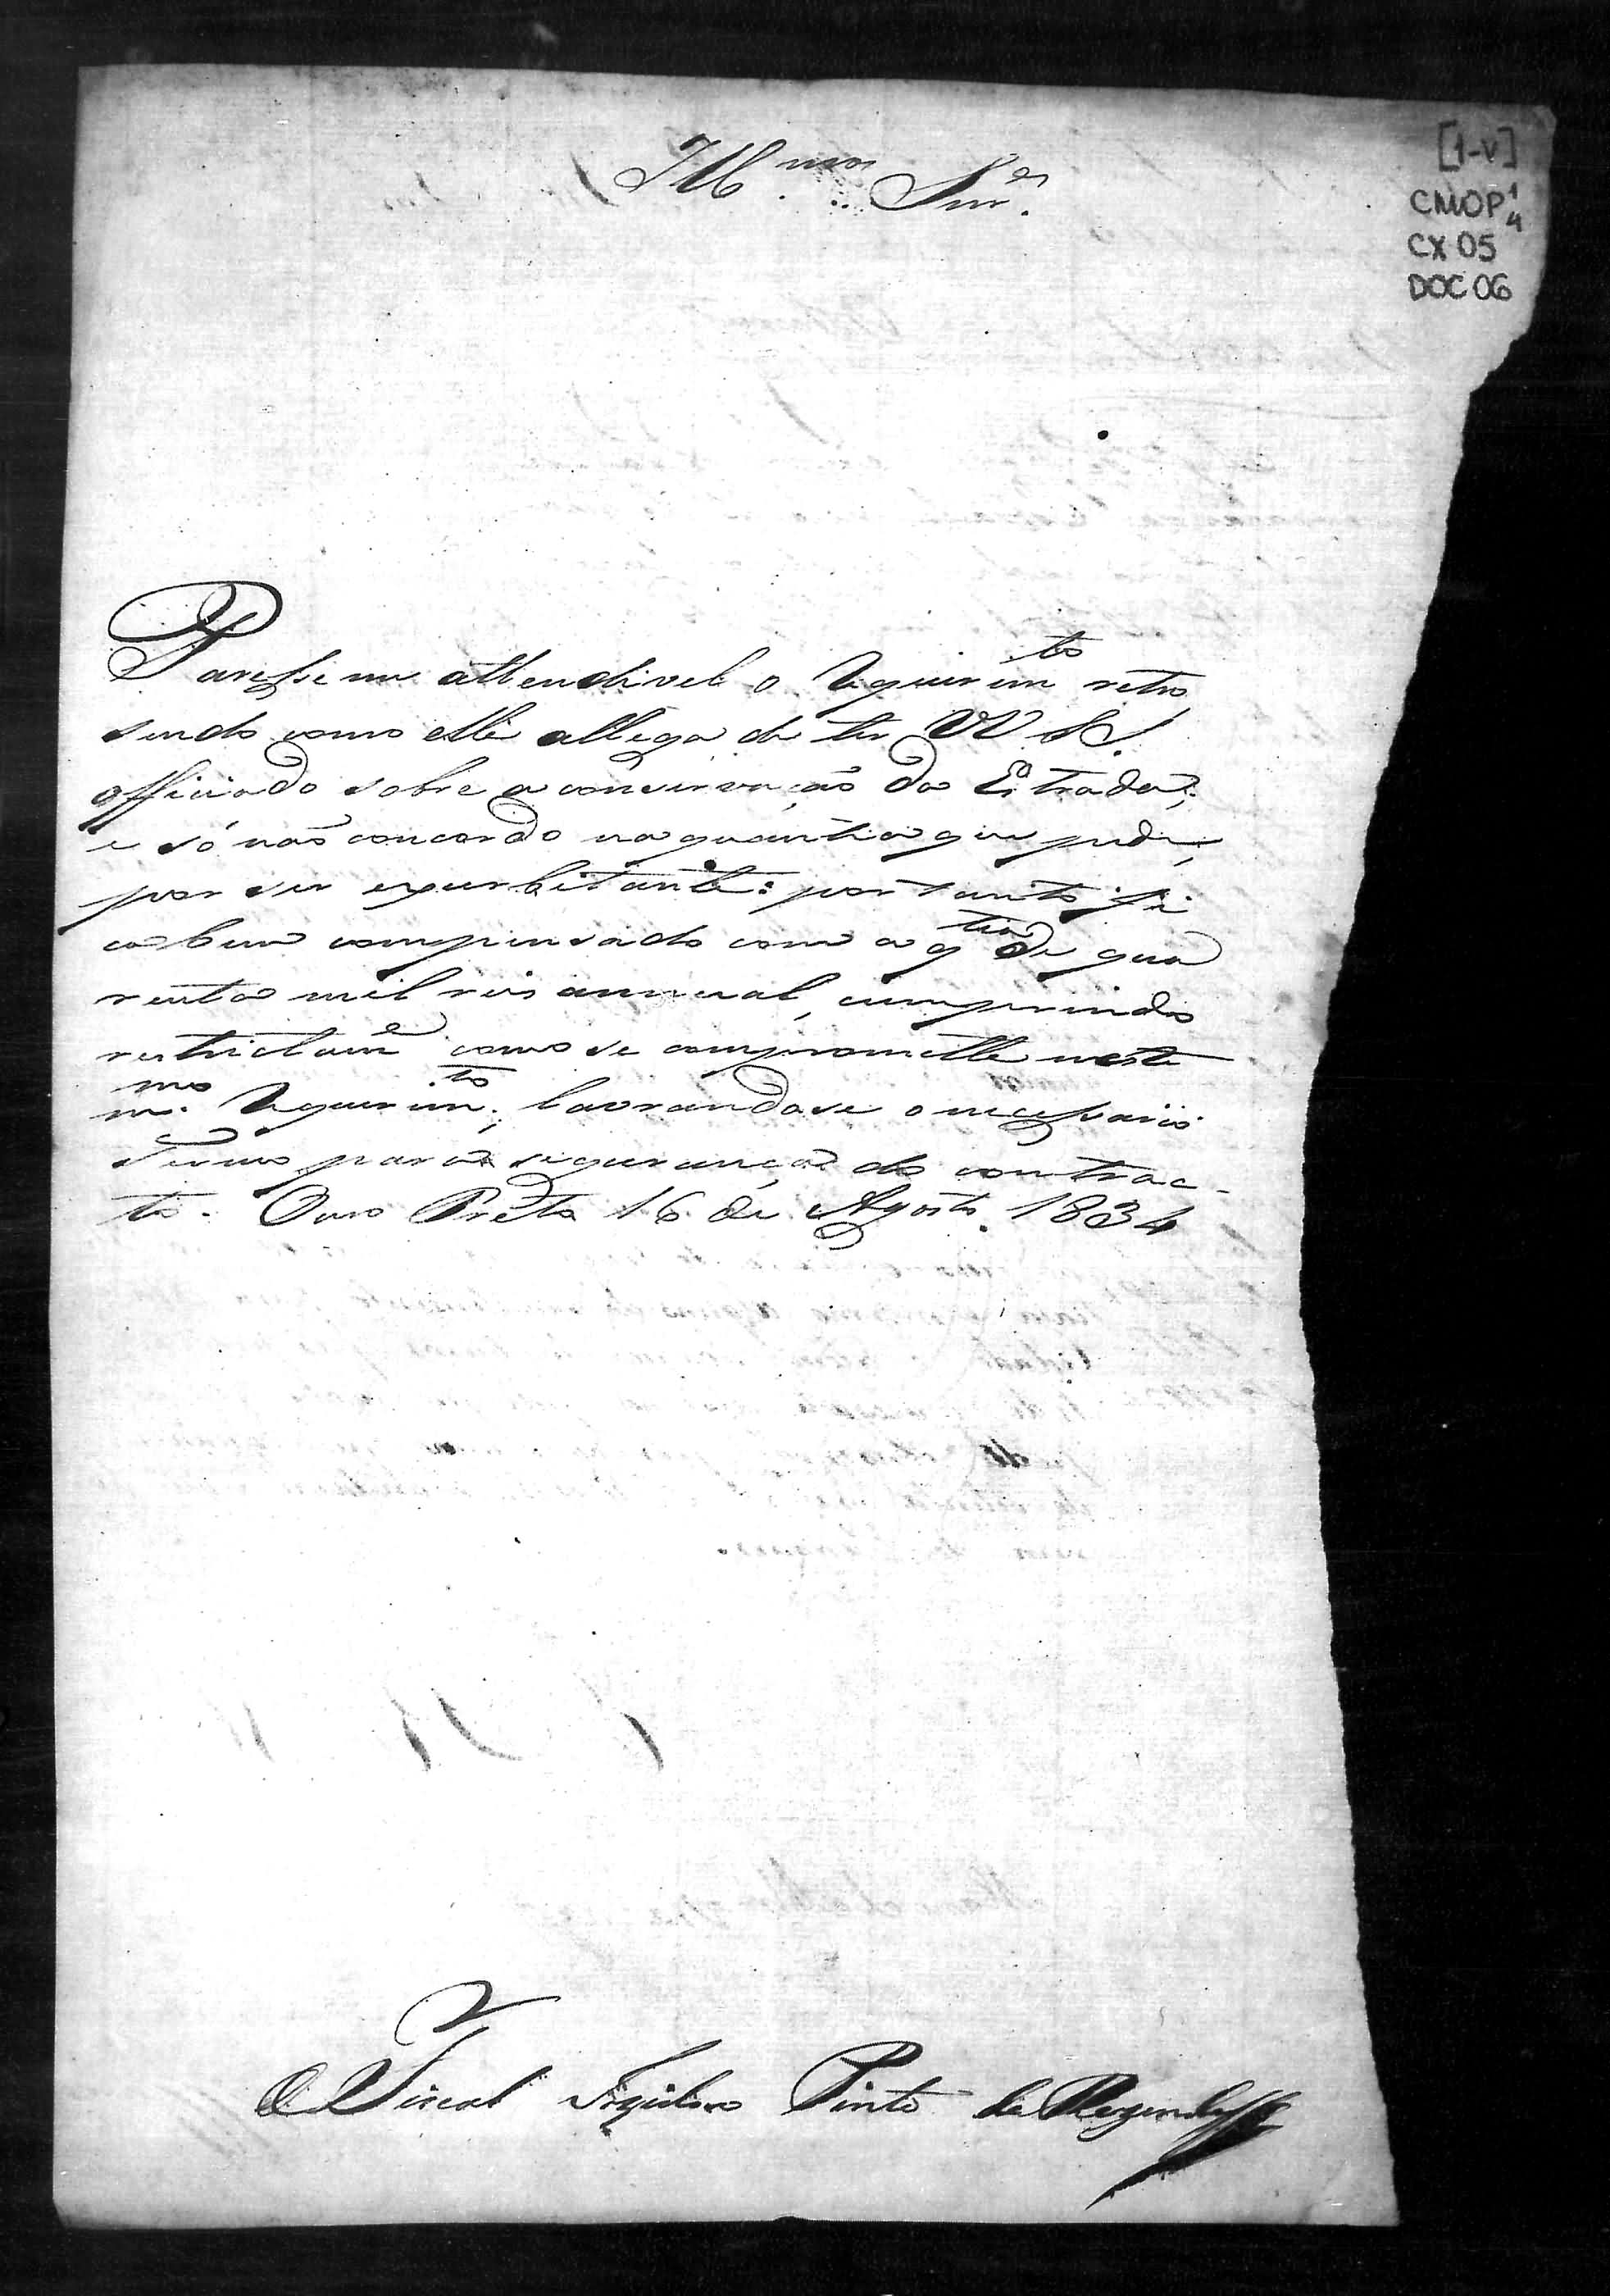 [1-V]
CMOP 1/4
CX 05
DOC 06
Ill.mos Snr.es
Paresseme attendivel o Requerim.to retro,
sendo como elle allega de ter VV SS.
officiado sobre a conservação da Estrada;
e só não concordo na quantia que pede,
por ser exurbitante: portanto fi
ca bem compensado com a q.tia de qua
renta mil reis annual, cumprindo
restrictam.e como se compromette neste
m.mo Requerim.to; lavrandose o necessario
Termo para segurança do contrac-
to. Ouro Preto 16 de Agosto 1834
O Fiscal Pinto de Rezende